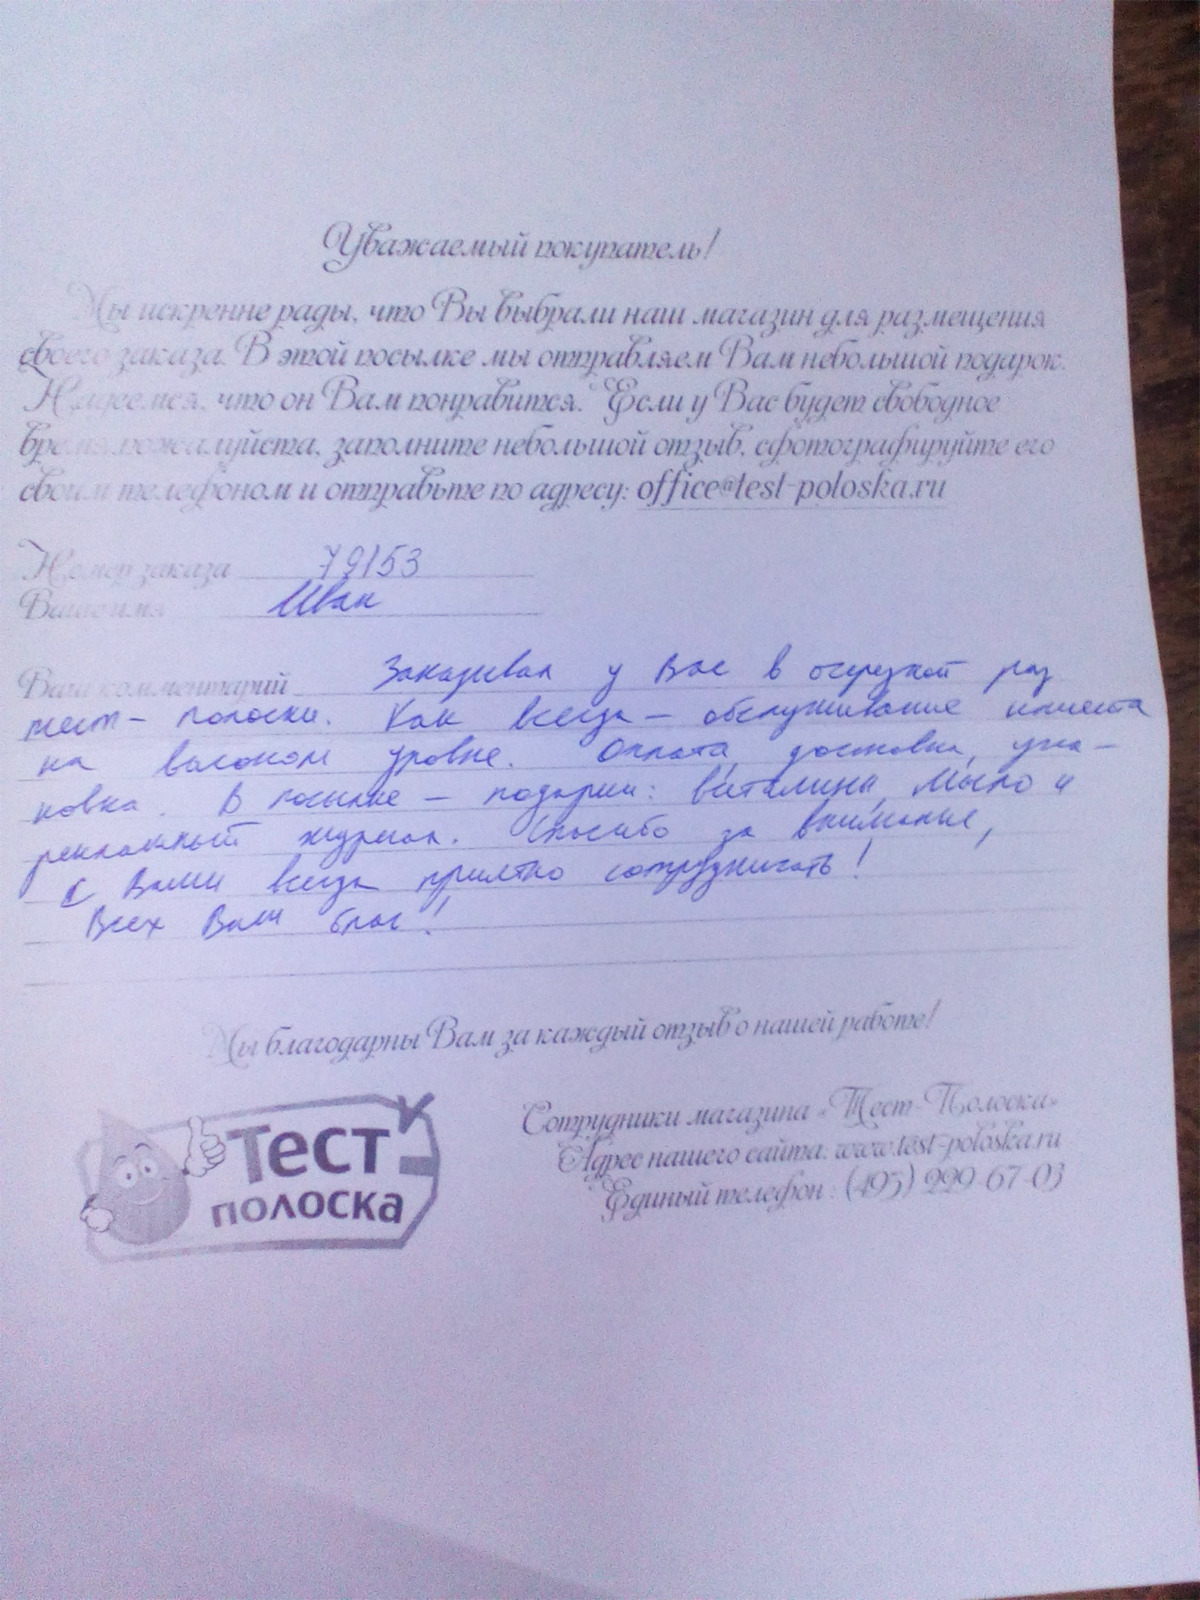 Уважаемый покупатель!
Мы искренне рады, что Вы выбрали наш магазин для размещения
своего заказа. В этой посылке мы отправляем Вам небольшой подарок.
Надеемся, что он Вам понравится. Если у Вас будет свободное
время, пожалуйста, заполните небольшой отзыв, сфотографируйте его
своим телефоном и отправьте по адресу: office@test-poloska.ru
Номер заказа 79153
Ваше имя Иван
Ваш комментарий Заказывал у Вас в очередной раз
тест-полоски. Как всегда - обслуживание клиента
на высоком уровне. Оплата, доставка, упа-
ковка. В посылке - подарки: витамины, мыло и
рекламный журнал. Спасибо за внимание,
с Вами всегда приятно сотрудничать!
Всех Вам благ!
Мы благодарны Вам за каждый отзыв о нашей работе!
Тест
полоска
Сотрудники магазина «Тест-Полоска»
Адрес нашего сайта: www.test-poloska.ru
Единый телефон : (495) 229-67-03